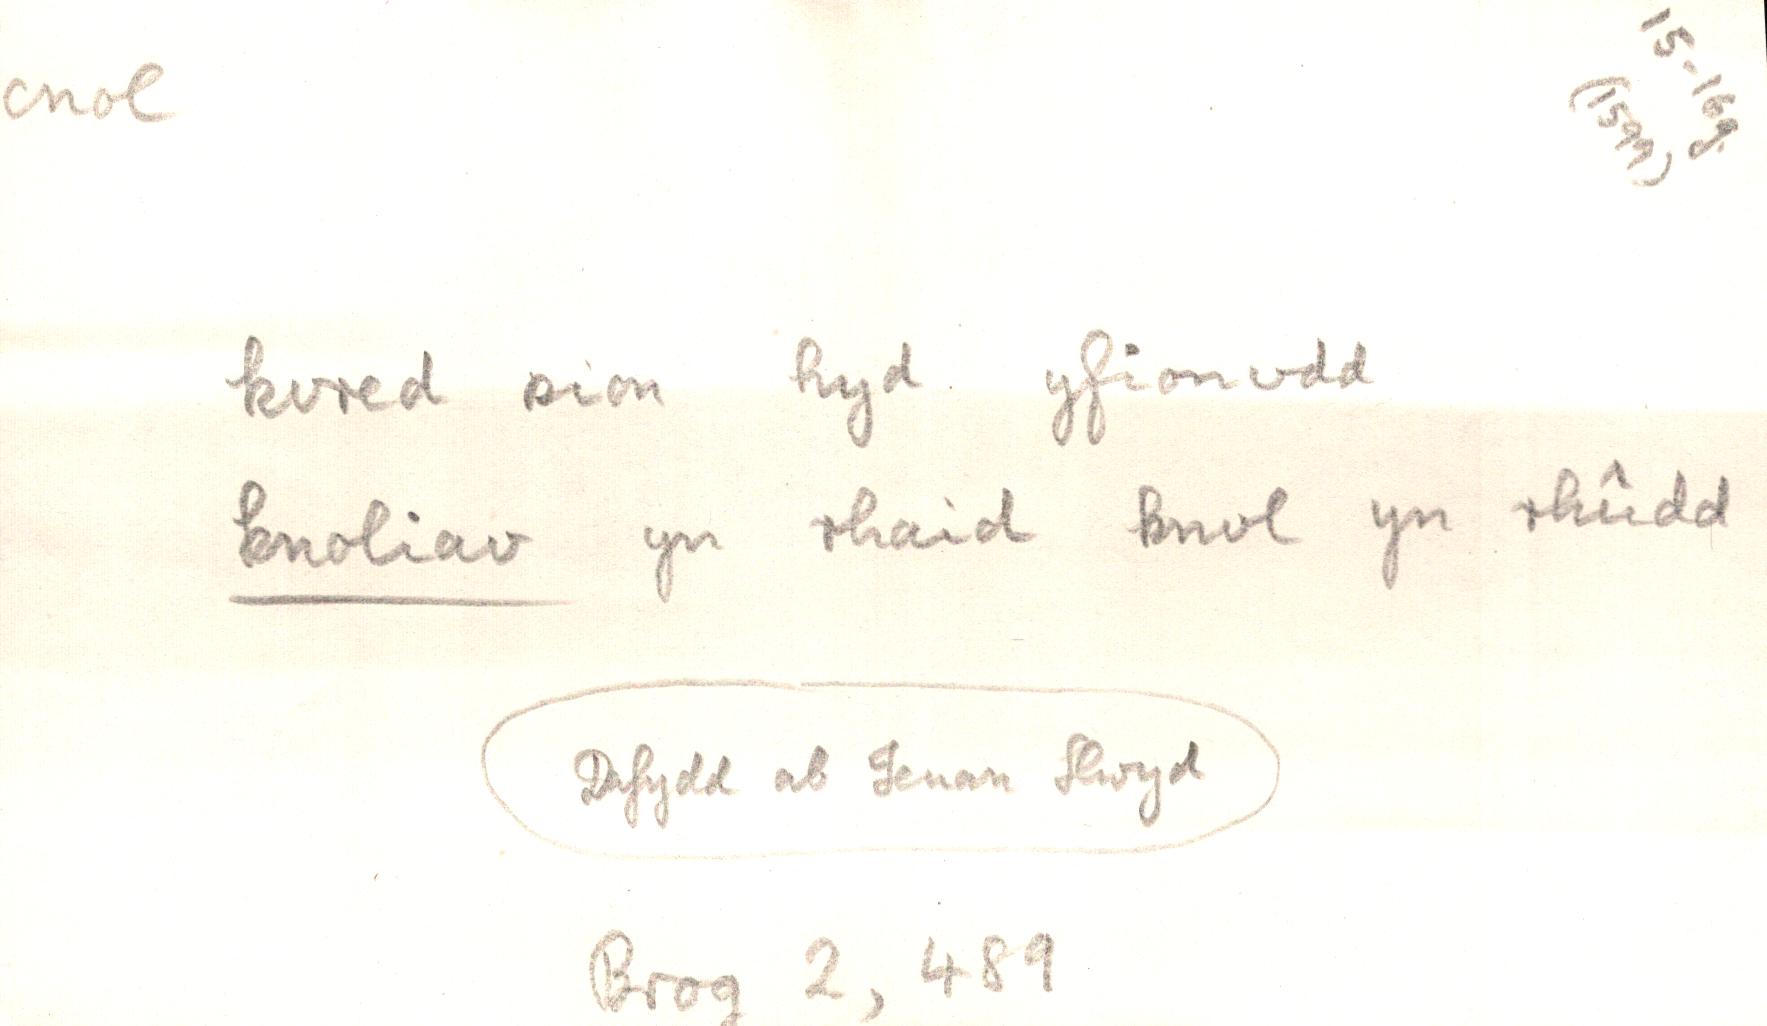 cnol
15-16g.
(1599)
kvred sion hyd yfionvdd
knoliav yn rhaid knvl yn rhûdd
Dafydd ab Ieuan Llwyd
Brog 2, 489